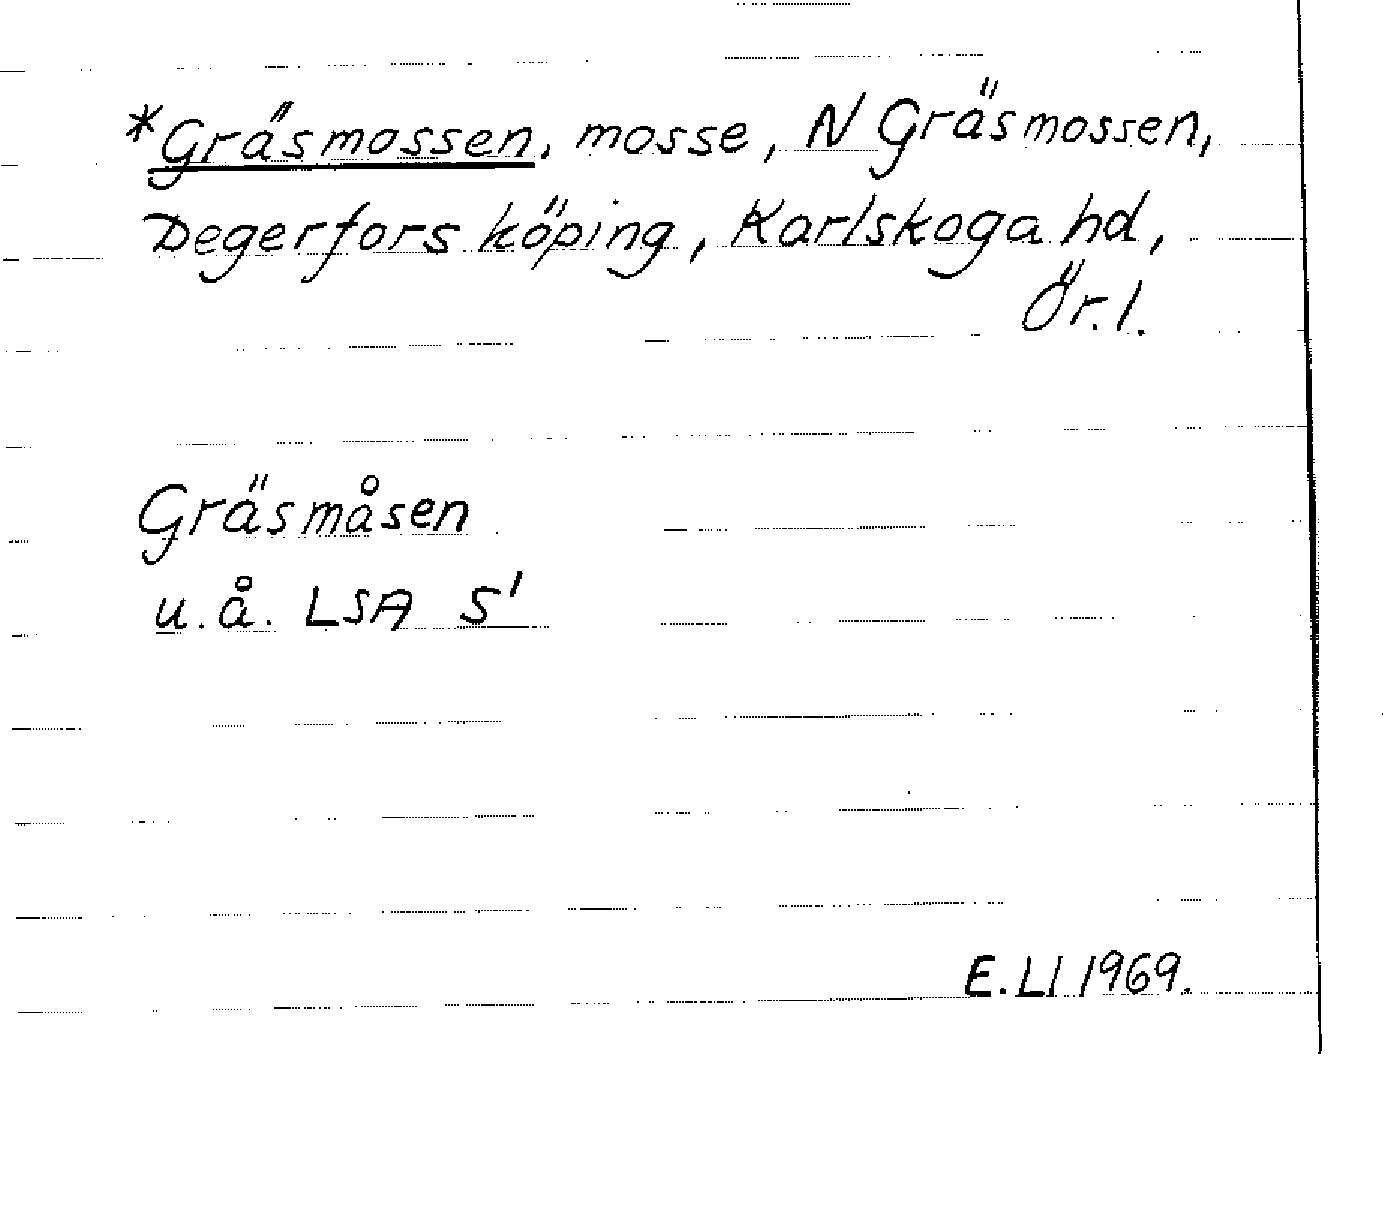 *Gräsmossen, mosse, N Gräsmossen,
Degerfors köping, Karlskoga hd,
Ör.l.
Gräsmåsen
u.å. LSA S'
E.LI 1969.